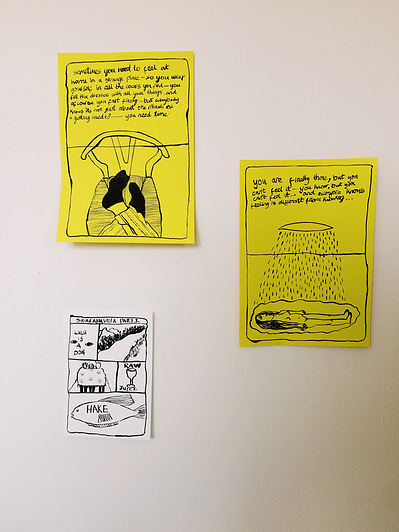 sometimes you need to feel at
home in a strange place — so you wrap
yourself in all the you find — you
fill the with all your things, and
of course you feel — but everybody
knows its not just about the or
getting used to — you need time.
you are finally there, but you
can't feel it — you know, but you
can't feel it... and everyone knows
feeling is different from knowing...
PART 1
LULU
IS
A
DOG
RAW
JUICE
HAKE